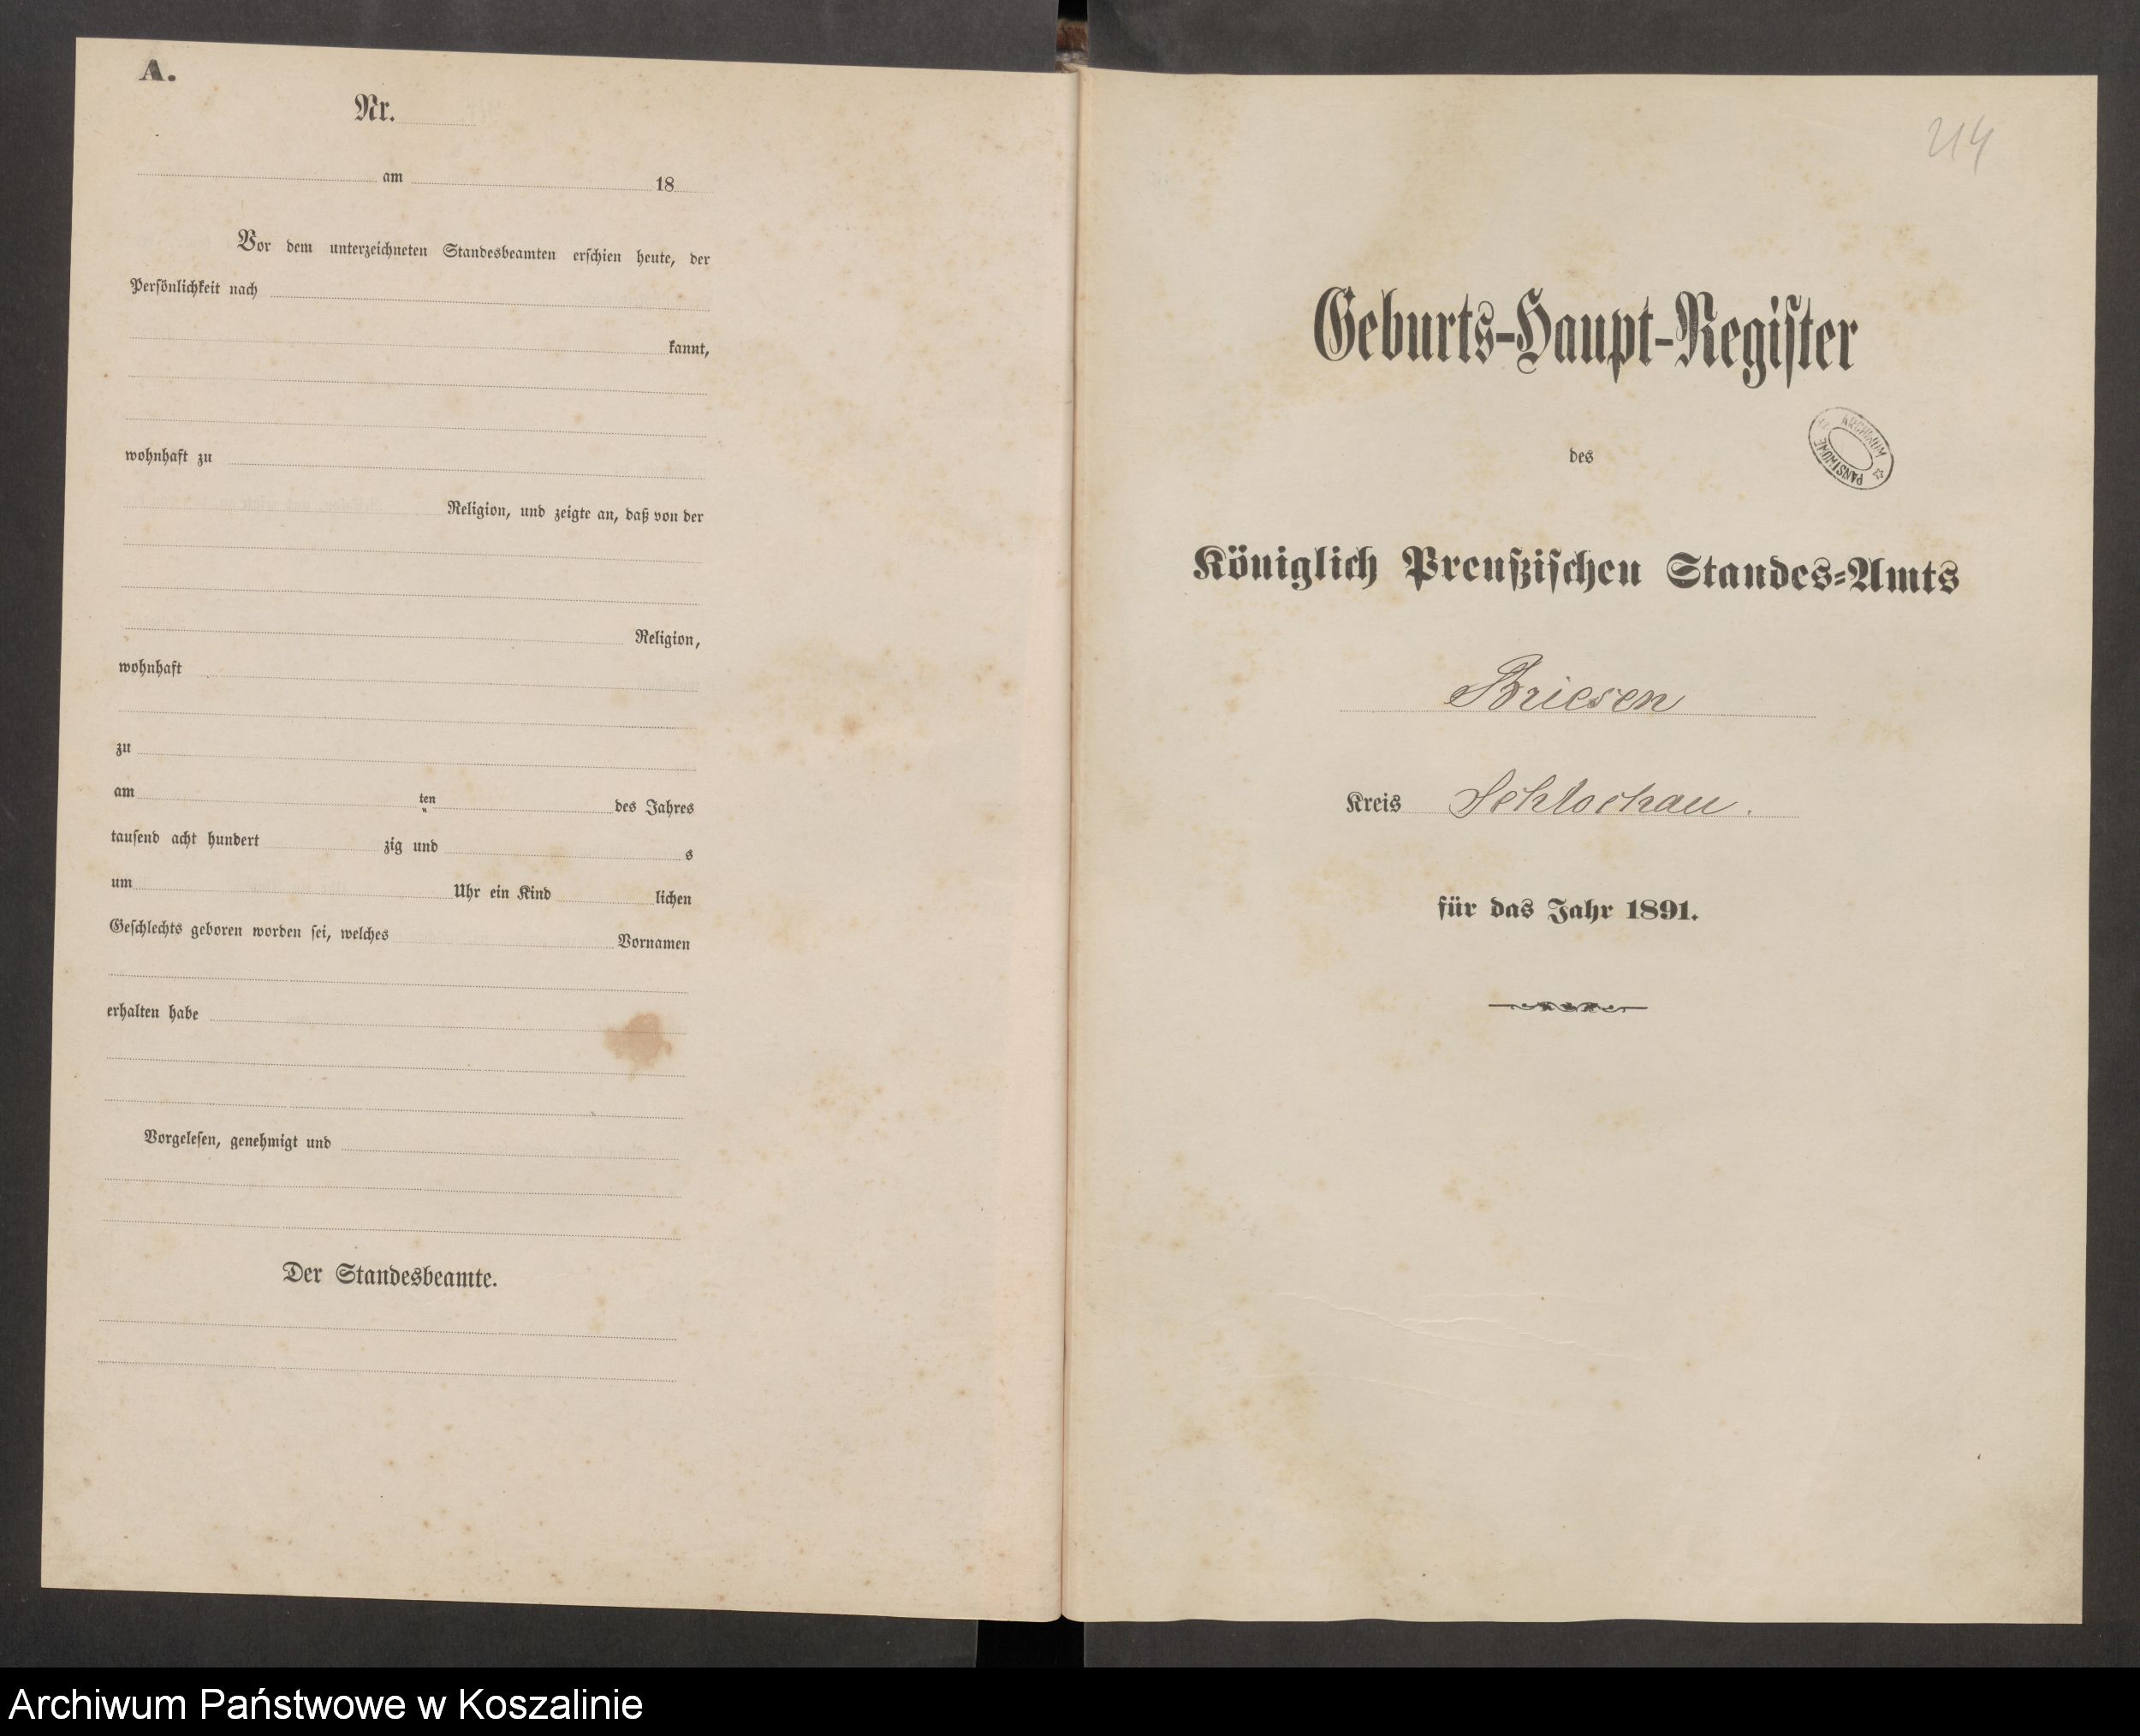 A.
Nr.
am 18
Vor dem unterzeichneten Standesbeamten erschien heute, der
Persönlichkeit nach
kannt,
wohnhaft zu
Religion, und zeigte an, daß von der
Religion,
wohnhaft
zu
am ten des Jahres
tausend acht hundert zig und s
um Uhr ein Kind lichen
Geschlechts geboren worden sei, welches Vornamen
erhalten habe
Vorgelesen, genehmigt und
Der Standesbeamte.
214
Geburts-Haupt-Register
des
ARCHIWUM PAŃSTWOWE
Königlich Preußischen Standes-Amts
Briesen
Kreis Schlochau.
für das Jahr 1891.
Archiwum Państwowe w Koszalinie